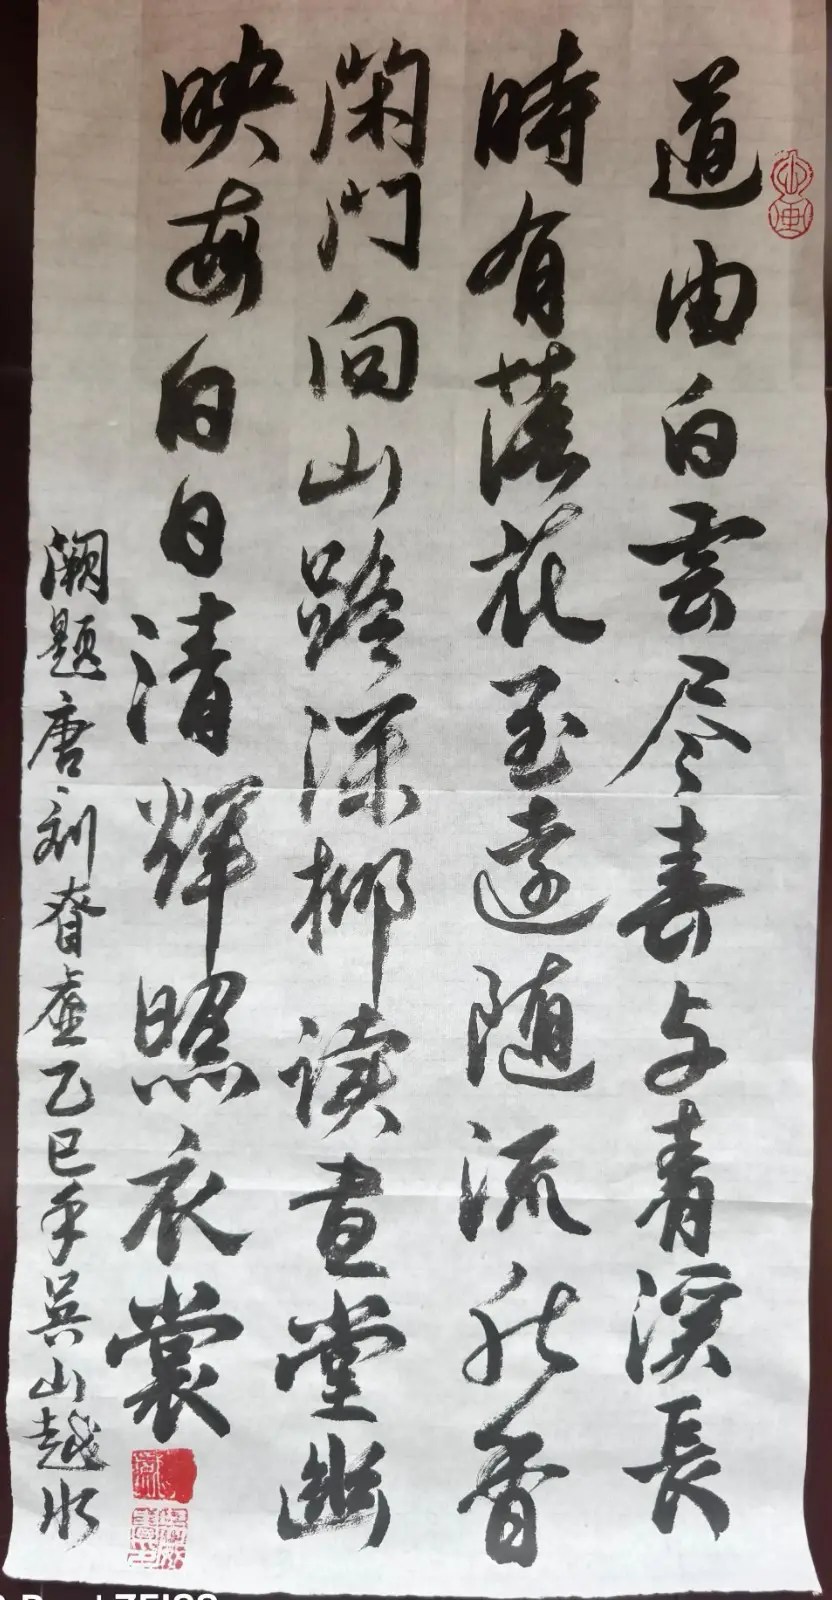 道由白雲尽春与青溪長
時有落花至遠随流水香
閑門向山路深柳读書堂幽
映每白日清輝照衣裳
阙题唐刘眘虚乙巳年吴山越水